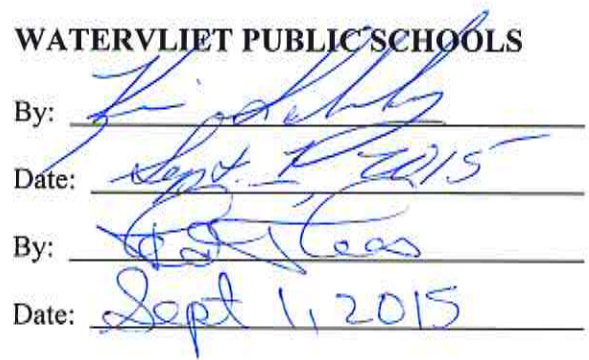 WATERVLIET PUBLIC SCHOOLS
By:
Date: Sept. 1, 2015
By:
Date: Sept 1, 2015